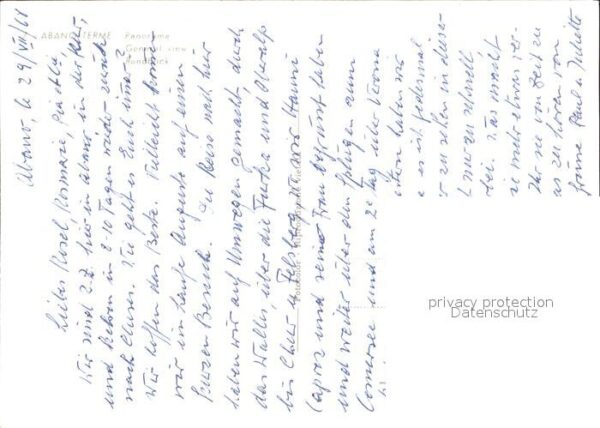 ABANO TERME
Panorama
General view
Rundblick
Abano, le 29/VII/68
Liebes Rösel, Rosmarie, Pia
Wir sind z.Z. hier in Abano in der Kur,
und kehren in 8-10 Tagen wieder zurück
nach Cluses. Wie geht es Euch immer?
Wir hoffen das Beste. Vielleicht
wir im Laufe Augusts auf einen
kurzen Besuch. Die Reise nach hier
haben wir auf Umwegen gemacht, durch
das Wallis, über die Furka und Oberalp
bis Chur u. Felsberg, wo wir
Caprez und seine Frau begrüsst haben
und weiter über den Splügen zum
Comersee und am 2e Tag über Verona
hi
haben wir
es ist jedesmal
zu sehen in dieser
nur zu schnell
bei. Was macht
etwas
Ihr sie von Zeit zu
zu hören von
Grüsse Paul u Juliette
privacy protection
Datenschutz